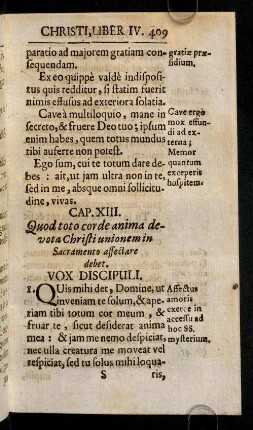 CHRISTI, LIBER IV. 409
paratio ad majorem gratiam con-
sequendam.
gratiæ præ-
sidium.
Ex eo quippè valdè indisposi-
tus quis redditur, si statim fuerit
nimis effusus ad exteriora solatia.
Cave à multiloquio, mane in
secreto, & fruere Deo tuo; ipsum
enim habes, quem totus mundus
tibi auferre non potest.
Ego sum, cui te totum dare de-
bes: ait, ut jam ultra non in te,
sed in me, absque omni sollicitu-
dine, vivas.
Cave ergo
mox effun-
di ad ex-
terna;
Memor
quantum
exceperis
hospitem.
CAP. XIII.
Quod toto corde anima de-
vota Christi unionem in
Sacramento affectare
debet.
VOX DISCIPULI.
1. QUis mihi det, Domine, ut
inveniam te solum, & ape-
riam tibi totum cor meum, &
fruar te, sicut desiderat anima
mea: & jam nemo despiciat,
nec ulla creatura me moveat vel
respiciat, sed tu solus mihi loqua-
Affectus
amoris
exerce in
accessu ad
hoc SS.
mysterium.
S ris,